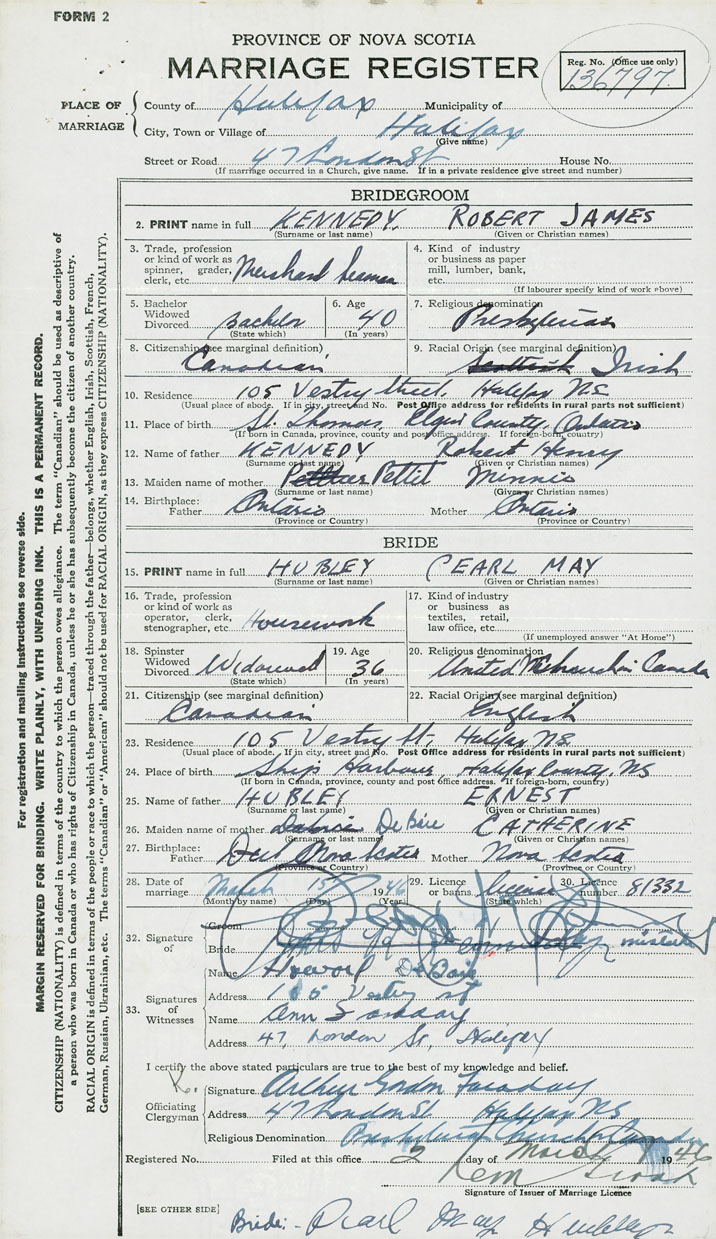 FORM 2
PROVINCE OF NOVA SCOTIA
MARRIAGE REGISTER
Reg. No. (Office use only)
136797.
PLACE OF MARRIAGE
County of Halifax Municipality of
City, Town or Village of Halifax
(Give name)
Street or Road 47 London St House No.
(If marriage occurred in a Church, give name. If in a private residence give street and number)
BRIDEGROOM
2. PRINT name in full KENNEDY. ROBERT JAMES
(Surname or last name) (Given or Christian names)
3. Trade, profession or kind of work as spinner, grader, clerk, etc. Merchant seaman
4. Kind of industry or business as paper mill, lumber, bank, etc.
(If labourer specify kind of work above)
5. Bachelor Widowed Divorced bachelor
(State which)
6. Age 40
(In years)
7. Religious denomination Presbyterian
8. Citizenship (see marginal definition) Canadian
9. Racial Origin (see marginal definition) Scottish Irish
10. Residence 105 Vestry Street, Halifax NS
(Usual place of abode. If in city, street and No. Post Office address for residents in rural parts not sufficient)
11. Place of birth St. Thomas, Elgin County, Ontario
(If born in Canada, province, county and post office address. If foreign-born, country)
12. Name of father KENNEDY Robert Henry
(Surname or last name) (Given or Christian names)
13. Maiden name of mother Pettit Minnie
(Surname or last name) (Given or Christian names)
14. Birthplace: Father Ontario Mother Ontario
(Province or Country) (Province or Country)
BRIDE
15. PRINT name in full HUBLEY PEARL MAY
(Surname or last name) (Given or Christian names)
16. Trade, profession or kind of work as operator, clerk, stenographer, etc. Housework
17. Kind of industry or business as textiles, retail, law office, etc.
(If unemployed answer "At Home")
18. Spinster Widowed Divorced Widowed
(State which)
19. Age 36
(In years)
20. Religious denomination United Church in Canada
21. Citizenship (see marginal definition) Canadian
22. Racial Origin (see marginal definition) English
23. Residence 105 Vestry St. Halifax NS
(Usual place of abode. If in city, street and No. Post Office address for residents in rural parts not sufficient)
24. Place of birth Ship Harbour, Halifax County, NS
(If born in Canada, province, county and post office address. If foreign-born, country)
25. Name of father HUBLEY ERNEST
(Surname or last name) (Given or Christian names)
26. Maiden name of mother CATHERINE
(Surname or last name) (Given or Christian names)
27. Birthplace: Father Nova Scotia Mother Nova Scotia
(Province or Country) (Province or Country)
28. Date of marriage March 15 1946
(Month by name) (Day) (Year)
29. Licence or banns license
(State which)
30. Licence number 81332
32. Signature of
Groom
Bride
33. Signatures of Witnesses
Name Howard DeBaie
Address 105 Vestry st
Name Ann Faraday
Address 47, London St, Halifax
I certify the above stated particulars are true to the best of my knowledge and belief.
Officiating Clergyman
Signature Arthur Gordon Faraday
Address 47 London St Halifax NS
Religious Denomination Presbyterian Church Canada
Registered No. Filed at this office 2 day of March 1946
Signature of Issuer of Marriage Licence
[SEE OTHER SIDE]
Bride: - Pearl May Hubley
For registration and mailing instructions see reverse side.
MARGIN RESERVED FOR BINDING. WRITE PLAINLY, WITH UNFADING INK. THIS IS A PERMANENT RECORD.
CITIZENSHIP (NATIONALITY) is defined in terms of the country to which the person owes allegiance. The term "Canadian" should be used as descriptive of
a person who was born in Canada or who has rights of Citizenship in Canada, unless he or she has subsequently become the citizen of another country.
RACIAL ORIGIN is defined in terms of the people or race to which the person—traced through the father—belongs, whether English, Irish, Scottish, French,
German, Russian, Ukrainian, etc. The terms "Canadian" or "American" should not be used for RACIAL ORIGIN, as they express CITIZENSHIP (NATIONALITY).